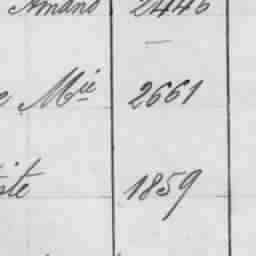 Amand 2446
Mie 2661
iste 1859